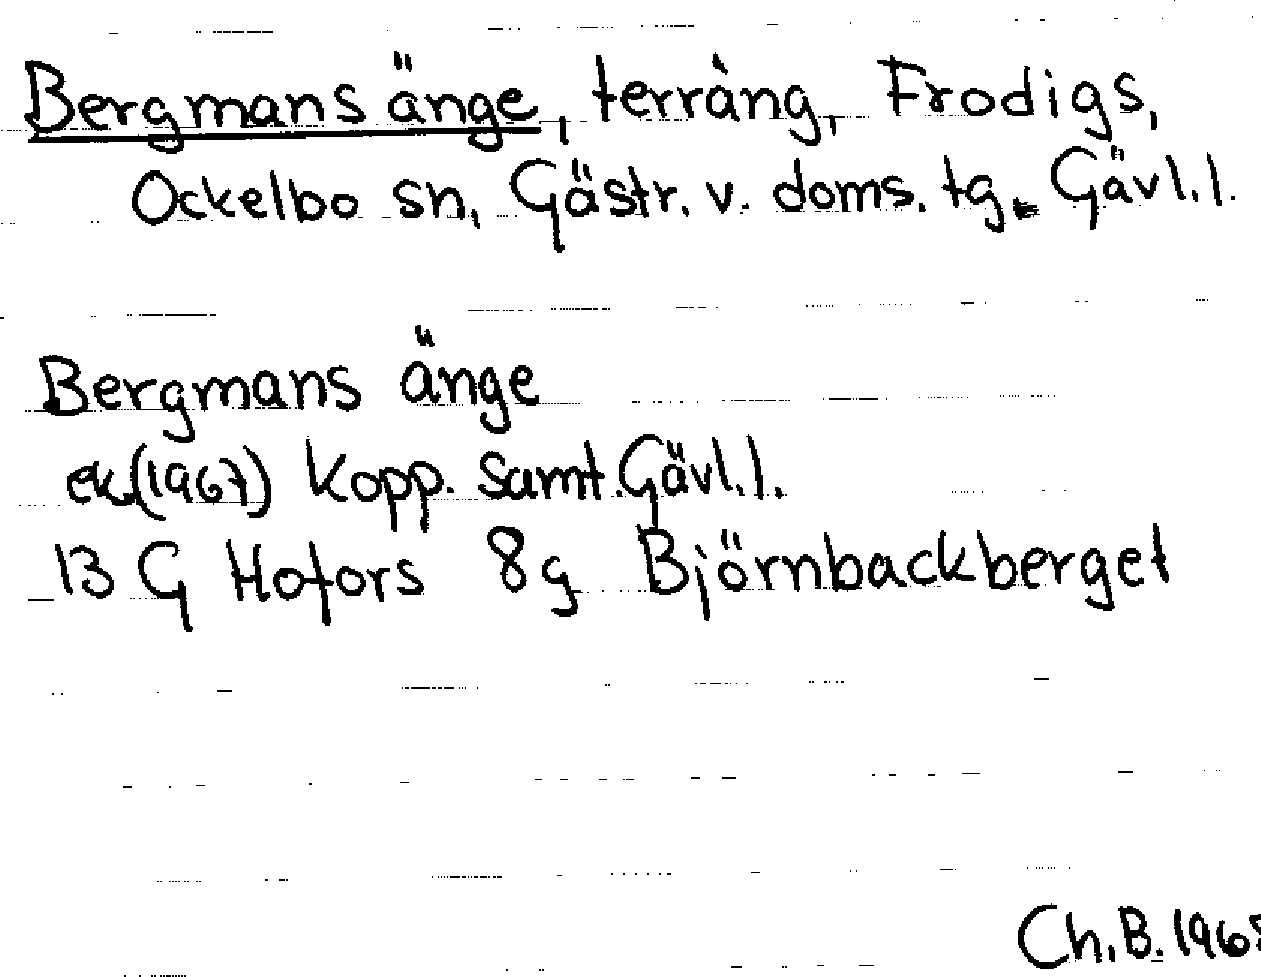 Bergmans änge, terräng, Frodigs,
Ockelbo sn, Gästr. v. doms. tg. Gävl. l.
Bergmans änge
ek (1967) Kopp. samt. Gävl. l.
13 G Hofors 8g Björnbackberget
Ch. B.